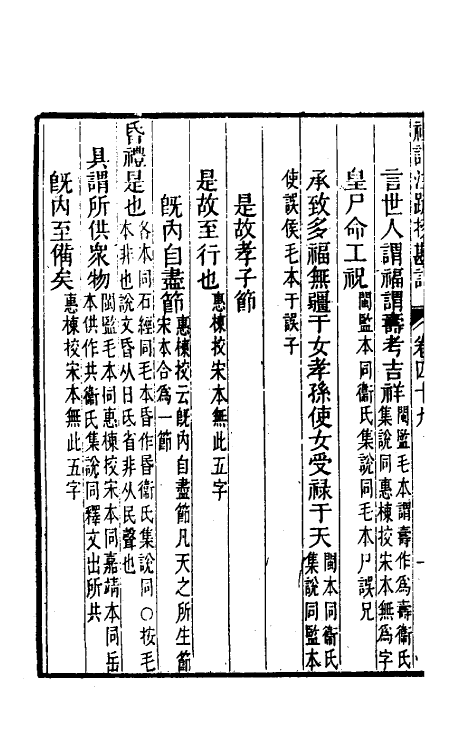 禮記注疏挍勘記 卷四十九
言世人謂福謂壽考吉祥 閩監毛本謂壽作爲壽衞氏集說同惠棟挍宋本無爲字
皇尸命工祝 閩監本同衞氏集說同毛本尸誤兄
承致多福無疆于女孝孫使女受祿于天 閩本同衞氏集說同監本
使誤侯毛本于誤子
是故孝子節
是故至行也 惠棟挍宋本無此五字
旣內自盡節 惠棟挍云旣內自盡節凡天之所生節宋本合爲一節
昏禮是也 各本同石經同毛本昏作昬衞氏集說同○按毛本非也說文昏从日氐省非从民聲也
具謂所供衆物 閩監毛本同惠棟挍宋本同嘉靖本同岳本供作共衞氏集說同釋文出所共
旣內至備矣 惠棟挍宋本無此五字